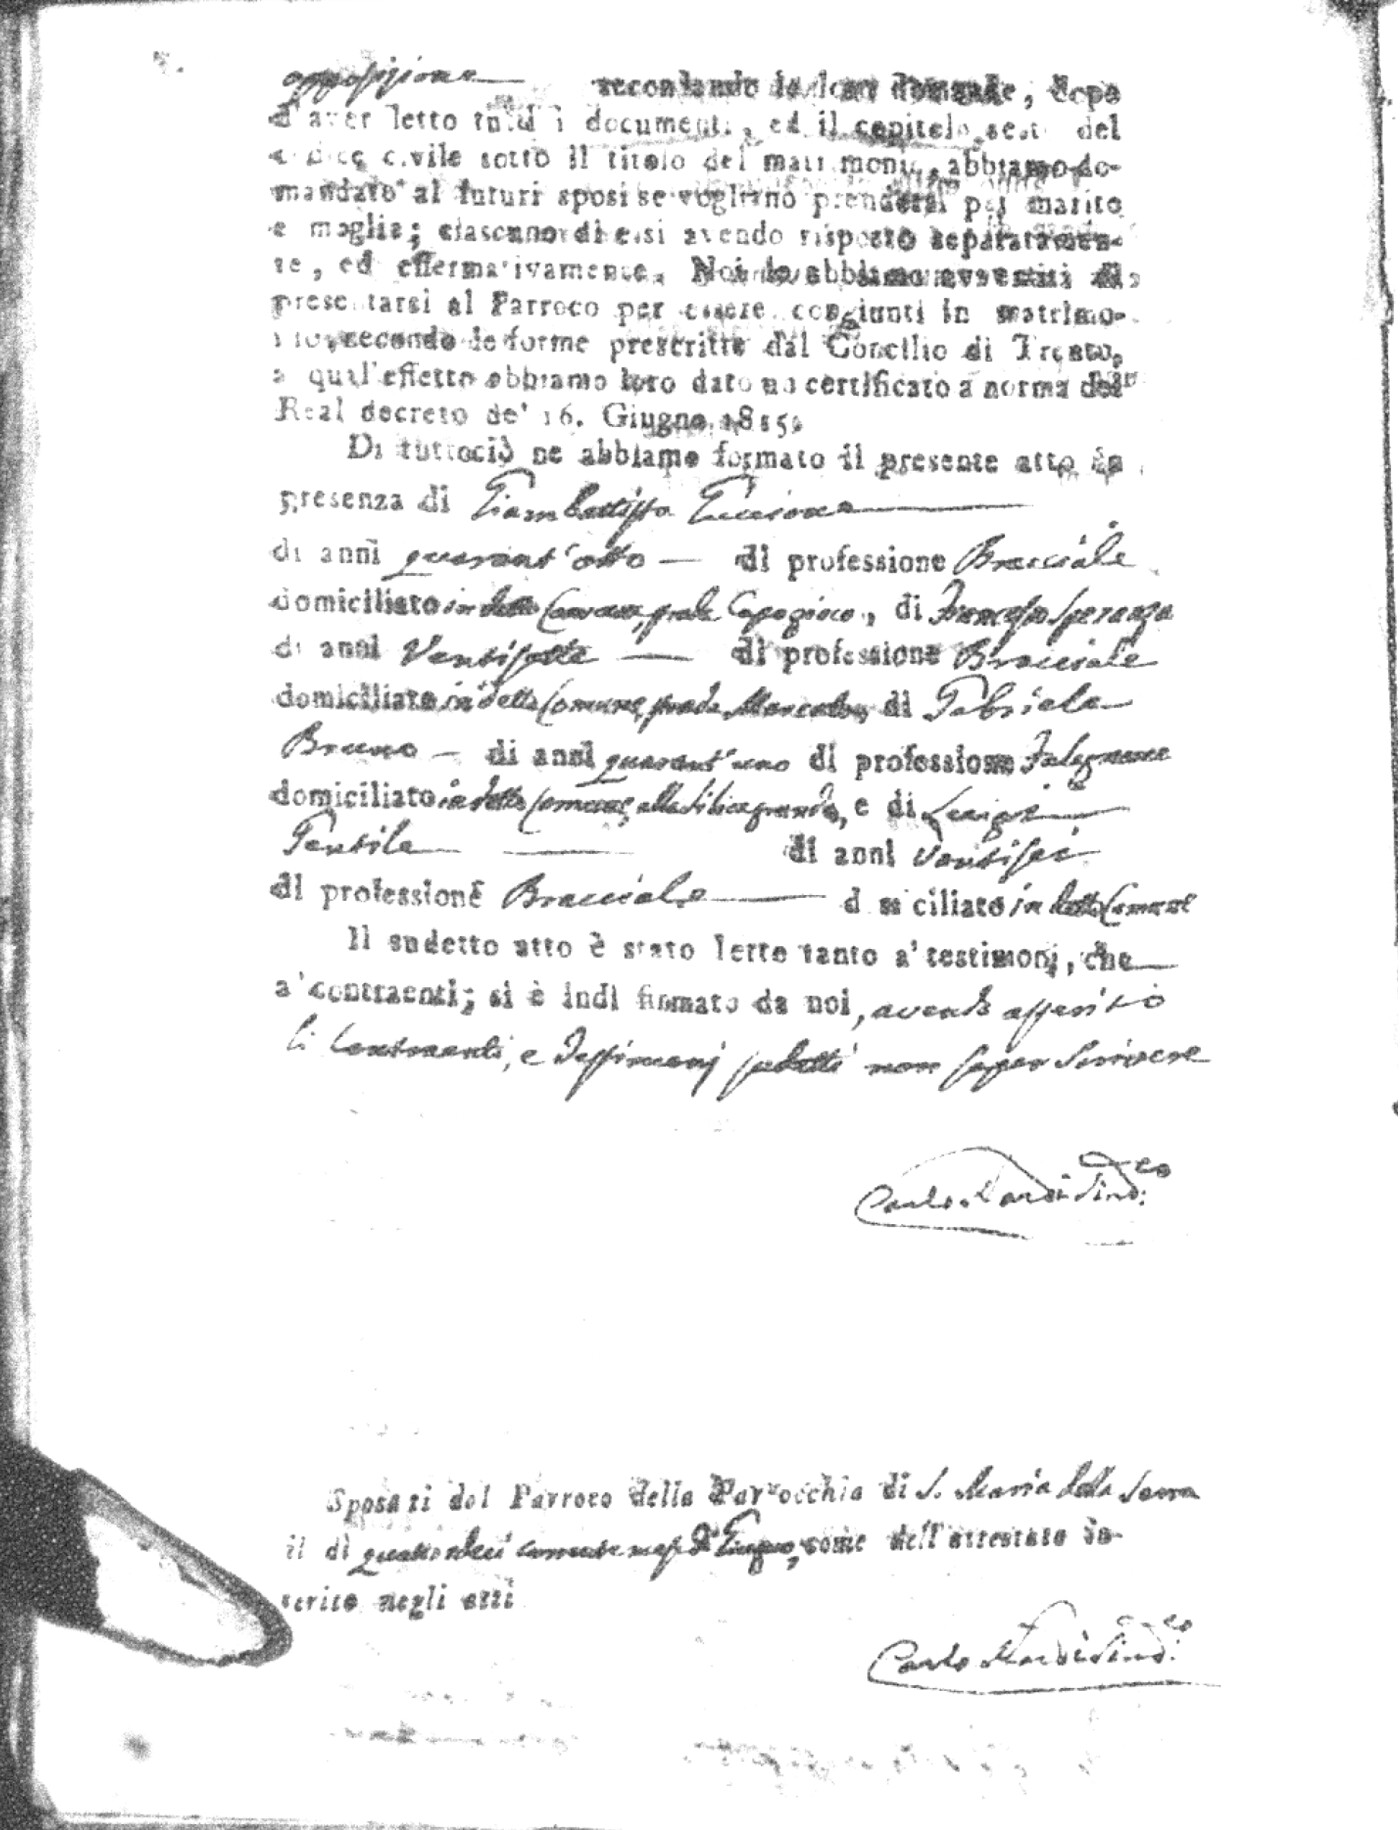 opposizione secondando le loro domande, dopo
d'aver letto tutti i documenti, ed il capitolo sesto del
codice civile sotto il titolo del matrimonio, abbiamo do-
mandato ai futuri sposi se vogliono prendersi per marito
e moglie; ciascuno di essi avendo risposto separatamen-
te, ed affermativamente. Noi li abbiamo avvertiti di
presentarsi al Parroco per essere congiunti in matrimo-
nio, secondo le forme prescritte dal Concilio di Trento,
a qual'effetto abbiamo loro dato un certificato a norma del
Real decreto de' 16. Giugno 1815.
Di tuttociò ne abbiamo formato il presente atto in
presenza di Giambattista
di anni quarant'otto — di professione Bracciale
domiciliato in detta Comune, strada Capogioco, di Francesco Speranza
di anni Ventisette — di professione Bracciale
domiciliato in detta Comune, strada Mercato, di Gabriele
Bruno — di anni quarant'uno di professione Falegname
domiciliato in detta Comune, alla grande, e di Luigi
Gentile — di anni Ventisei
di professione Bracciale — domiciliato in detta Comune
Il sudetto atto è stato letto tanto a' testimonj, che
a' contraenti; si è indi firmato da noi, avendo asserito
li Contraenti, e Testimonj sudetti non saper Scrivere
Carlo Sind:co
Sposati dal Parroco della Parrocchia di S. Maria della Serra
il dì quattordici corrente mese di Giugno, come dell'attestato in-
serito negli atti
Carlo Sind:co